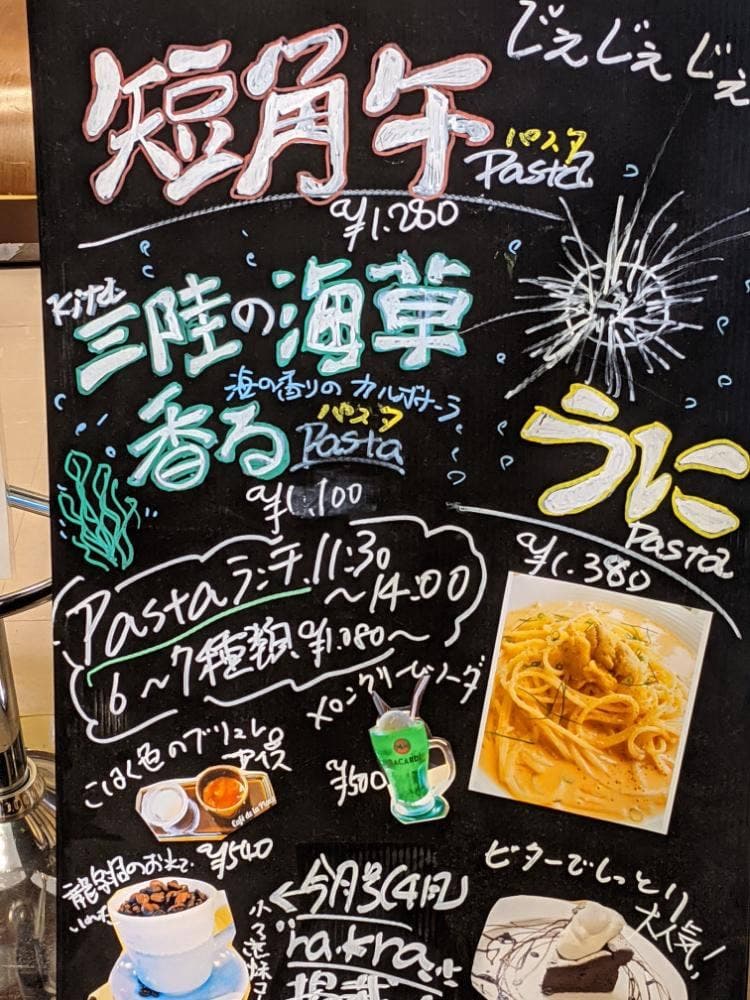 じぇじぇじぇ
短角牛
パスタ
Pasta
¥1.280
Kita
三陸の海草
香る
海の香りのカルボナーラ
パスタ
Pasta
¥1,100
うに
Pasta
¥1.380
Pastaランチ 11:30
～14:00
6～7種類 ¥1.080～
メロンクリームソーダ
¥500
BACARDI
こはく色のブリュレ
アイス
¥540
Café de la
龍泉洞のお水で
いれた
今月号(4月)
rakra
掲載
ビターでしっとり
大人気!